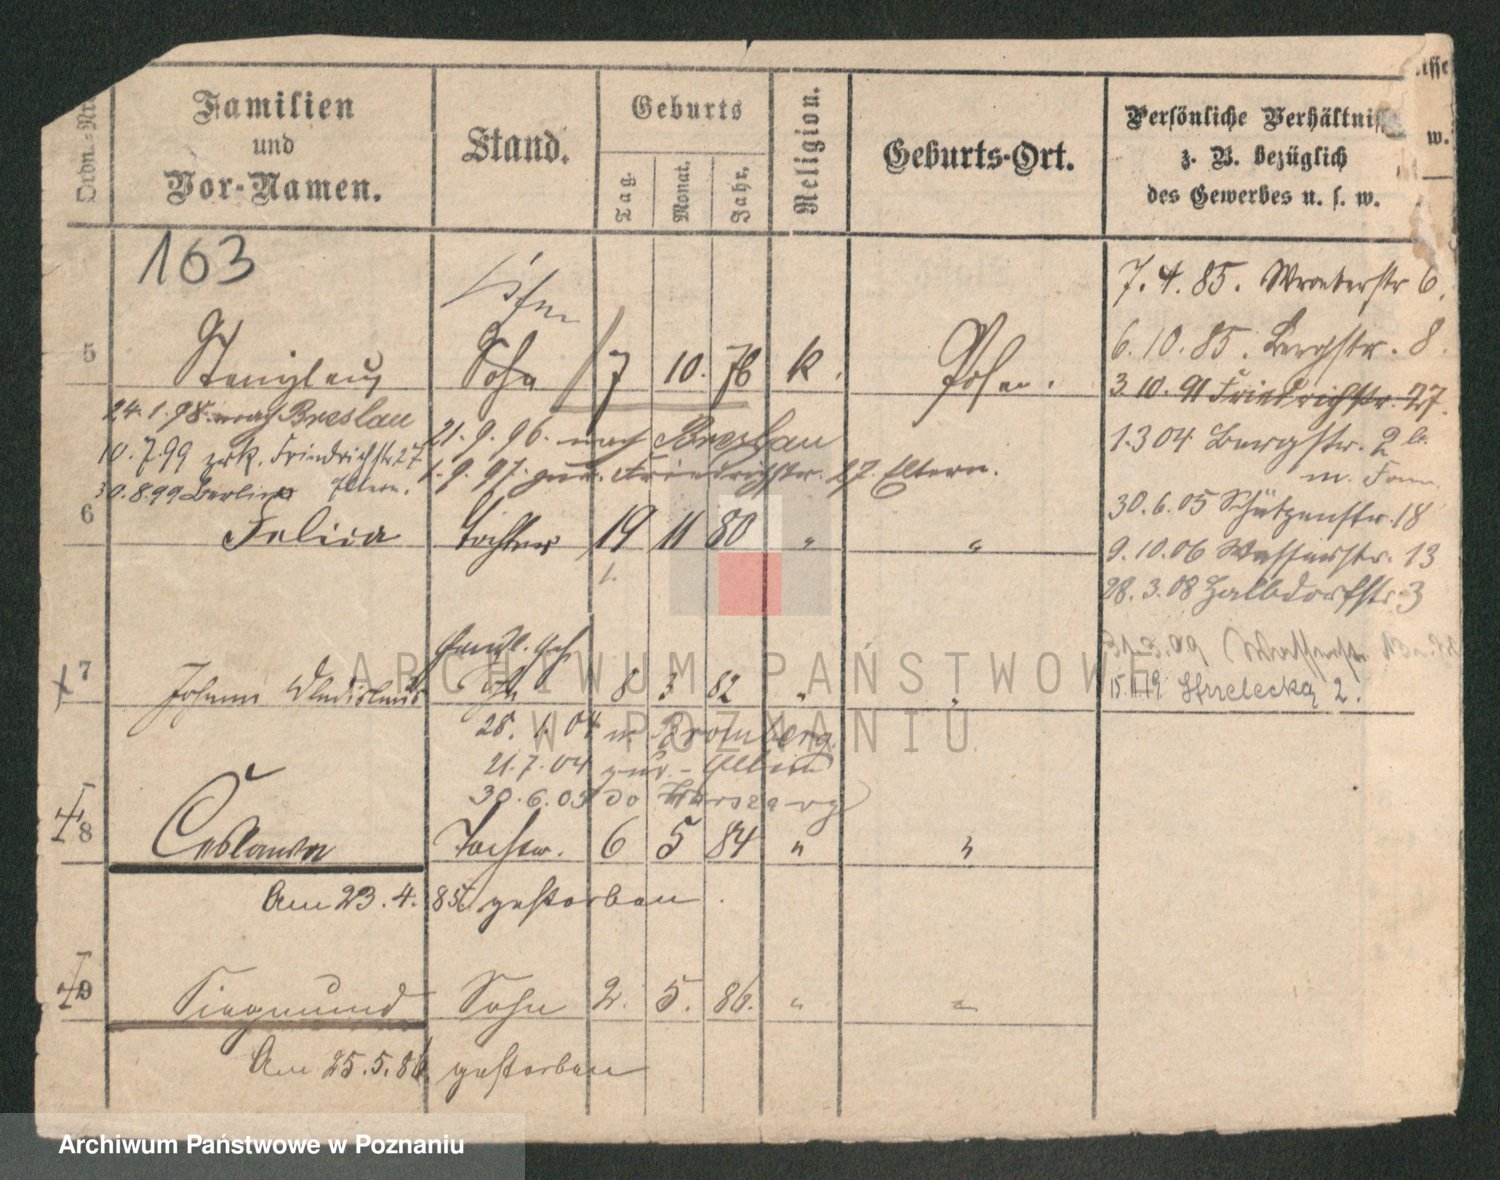 Ordn.-Nr.
Familien
und
Vor-Namen.
Stand.
Geburts
Tag.
Monat.
Jahr.
Religion.
Geburts-Ort.
Persönliche Verhältnisse
z. B. bezüglich
des Gewerbes u. s. w.
w.
163
7.4.85. Wronkerstr 6.
6.10.85. Bergstr. 8.
5 Stanislaus Sohn 7 10. 76 k. Posen.
3 10. 91 Friedrichstr. 27.
24.1.98. nach Breslau
21.9.96. nach Breslau
1.3 04 Bergstr. 2b.
10.7.99 zrk. Friedrichstr 27
1.9.97. zur. Friedrichstr. 27. Eltern.
m. Fam.
30.8.99 Berlin Eltern.
30.6.05 Schützenstr. 18
6 Felicia Tochter 19 11 80 " "
9.10.06 Wasserstr. 13
1.
28.3.08 Halbdorfstr. 3
31.3.09
7 Johann Wladislaus Sohn 8 3 82 " "
15.11.19 Strzelecka 2.
25.1.04 n. Bromberg
21.7.04 zur. - Eltern
30.6.05 do Warszawy
8 Ceslawa Tochter. 6 5 84 " "
Am 23.4.85 gestorben.
9 Siegmund Sohn 2. 5. 86. " "
Am 25.5.86 gestorben
ARCHIWUM PAŃSTWOWE
W POZNANIU
Archiwum Państwowe w Poznaniu